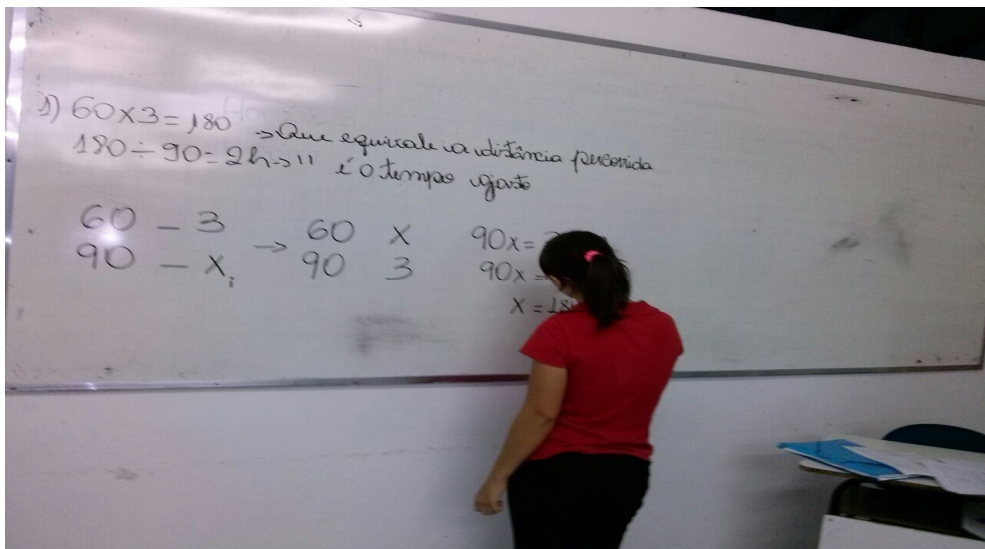 1) 60×3=180 → Que equivale a distância percorrida
180÷90=2h→ " é o tempo gasto
60 – 3 → 60 x
90 – x 90 3
90x=
90x=
x=18